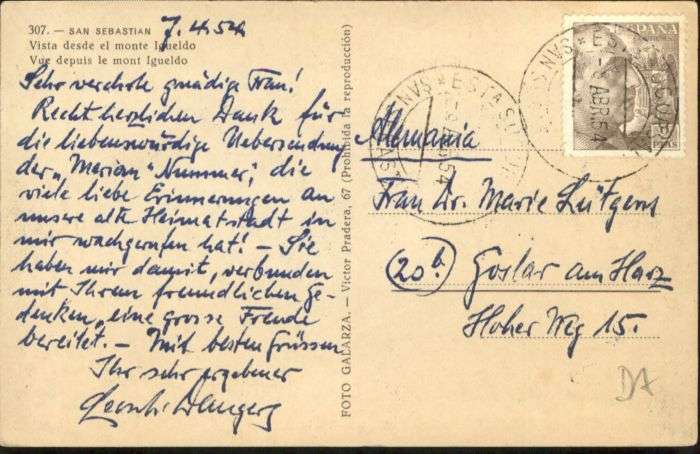 307. — SAN SEBASTIAN 7.4.54
Vista desde el monte Igueldo
Vue depuis le mont Igueldo
Sehr verehrte gnädige Frau!
Recht herzlichen Dank für
die liebenswürdige Uebersendung
der „Merian" Nummer, die
viele liebe Erinnerungen an
unsere alte Heimatstadt in
mir wachgerufen hat! – Sie
haben mir damit, verbunden
mit Ihrem freundlichen Ge-
denken, eine grosse Freude
bereitet. – Mit besten Grüssen
Ihr sehr ergebener
FOTO GALARZA. — Victor Pradera, 67 (Prohibida la reproducción)
ESPAÑA
PTAS
ABR. 54
Alemania
Frau Dr. Marie Lütgens
(20b) Goslar am Harz
Hoher Weg 15.
DA